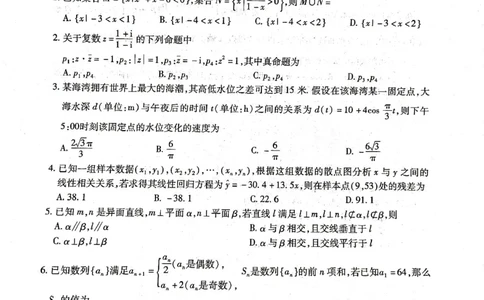 则M∪N=
A. {x|-3<x<1} B. {x|-4<x<1} C. {x|-4<x<2} D. {x|-3<x<2}
2. 关于复数z=(1+i)/(1-i)的下列命题中
p₁:z·z̄=-1,p₂:|z|=1,p₃:z̄=-i,p₄:z²=1,其中真命题为
A. p₁,p₄ B. p₂,p₃ C. p₂,p₄ D. p₃,p₄
3. 某海湾拥有世界上最大的海潮,其高低水位之差可达到15米.假设在该海湾某一固定点,大
海水深d(单位:m)与午夜后的时间t(单位:h)之间的关系为d(t)=10+4cos π/3 t,则下午
5:00时刻该固定点的水位变化的速度为
A. 2√3π/3 B. 6/π C. -6/π D. -6√3/π
4. 已知一组样本数据(x₁,y₁),(x₂,y₂),…,(xₙ,yₙ),根据这组数据的散点图分析x与y之间的
线性相关关系,若求得其线性回归方程为ŷ=-30.4+13.5x,则在样本点(9,53)处的残差为
A. 38.1 B. -38.1 C. 22.6 D. 91.1
5. 已知m,n是异面直线,m⊥平面α,n⊥平面β,若直线l满足l⊥m,l⊥n,l⊄α,l⊄β,则
A. α∥β,l∥α B. α与β相交,且交线垂直于l
C. α⊥β,l⊥β D. α与β相交,且交线平行于l
6. 已知数列{aₙ}满足aₙ₊₁={aₙ/2(aₙ是偶数), aₙ+2(aₙ是奇数), Sₙ是数列{aₙ}的前n项和,若已知a₁=64,那么
的值为